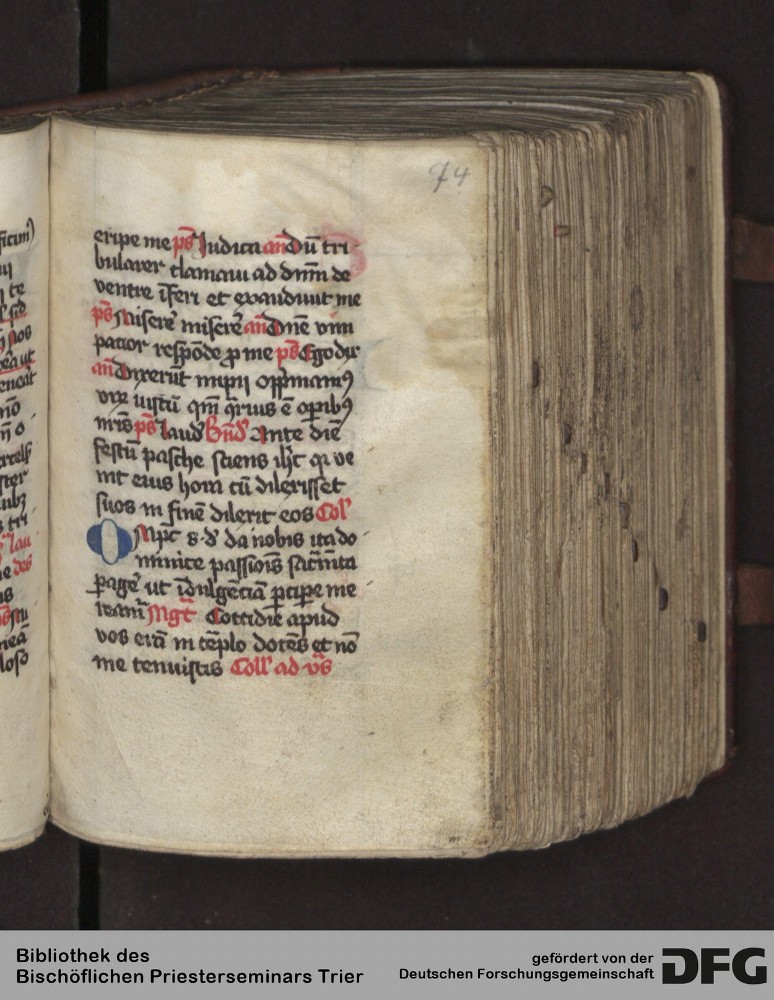 74
eripe me ps Iudica an Dū tri
bularer clamaui ad dnm̄ de
ventre īferi et exaudiuit me
ps Miserē miserē an Dn̄e vim
patior respōde ꝓ me ps Ego dix
an Dixerūt impii opp̄mamꝰ
virū iustū qm̄ ꝯrius ē oꝑibꝰ
nr̄is ps Laud Bn̄d Ante diē
festū pasche sciens ih̄c qꝛ ve
nit eius hora cū dilexisset
suos in finē dilexit eos Coll
OMp̄c s d̄ da nobis ita do
minice passiōis sacr̄mta
ꝑagē ut īdulgēciā ꝑciꝑe me
reamr̄ Mgt̄ Cottidie apud
vos erā in tēplo docēs et nō
me tenuistis Coll ad vs
Bibliothek des
Bischöflichen Priesterseminars Trier
gefördert von der
Deutschen Forschungsgemeinschaft
DFG